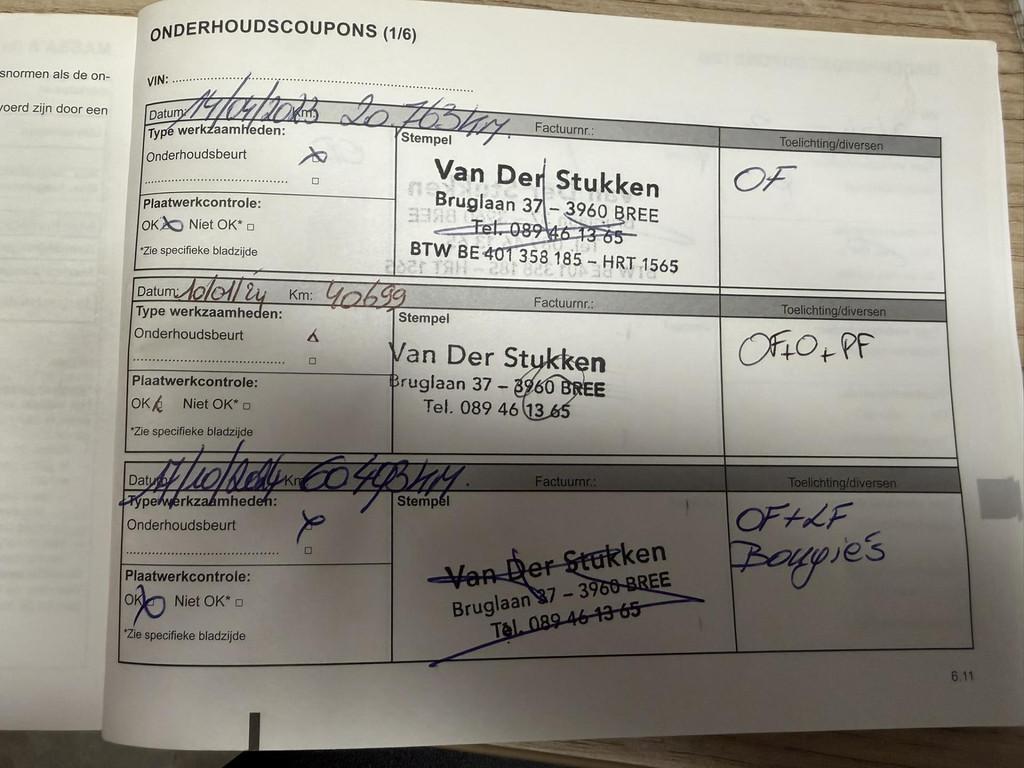 snormen als de on-
voerd zijn door een
ONDERHOUDSCOUPONS (1/6)
VIN:
Datum: 14/04/2023 Km: 20.763 km. Factuurnr.: Toelichting/diversen
Type werkzaamheden:
Onderhoudsbeurt
Plaatwerkcontrole:
OK Niet OK*
*Zie specifieke bladzijde
Stempel
Van Der Stukken
Bruglaan 37 – 3960 BREE
Tel. 089 46 13 65
BTW BE 401 358 185 – HRT 1565
OF
Datum: 10/01/24 Km: 40699 Factuurnr.: Toelichting/diversen
Type werkzaamheden:
Onderhoudsbeurt
Plaatwerkcontrole:
OK Niet OK*
*Zie specifieke bladzijde
Stempel
Van Der Stukken
Bruglaan 37 – 3960 BREE
Tel. 089 46 13 65
OF+O+PF
Datum: 17/10/2024 Km 60493 km. Factuurnr.: Toelichting/diversen
Type werkzaamheden:
Onderhoudsbeurt
Plaatwerkcontrole:
OK Niet OK*
*Zie specifieke bladzijde
Stempel
Van Der Stukken
Bruglaan 37 – 3960 BREE
Tel. 089 46 13 65
OF+LF
Bougie's
6.11